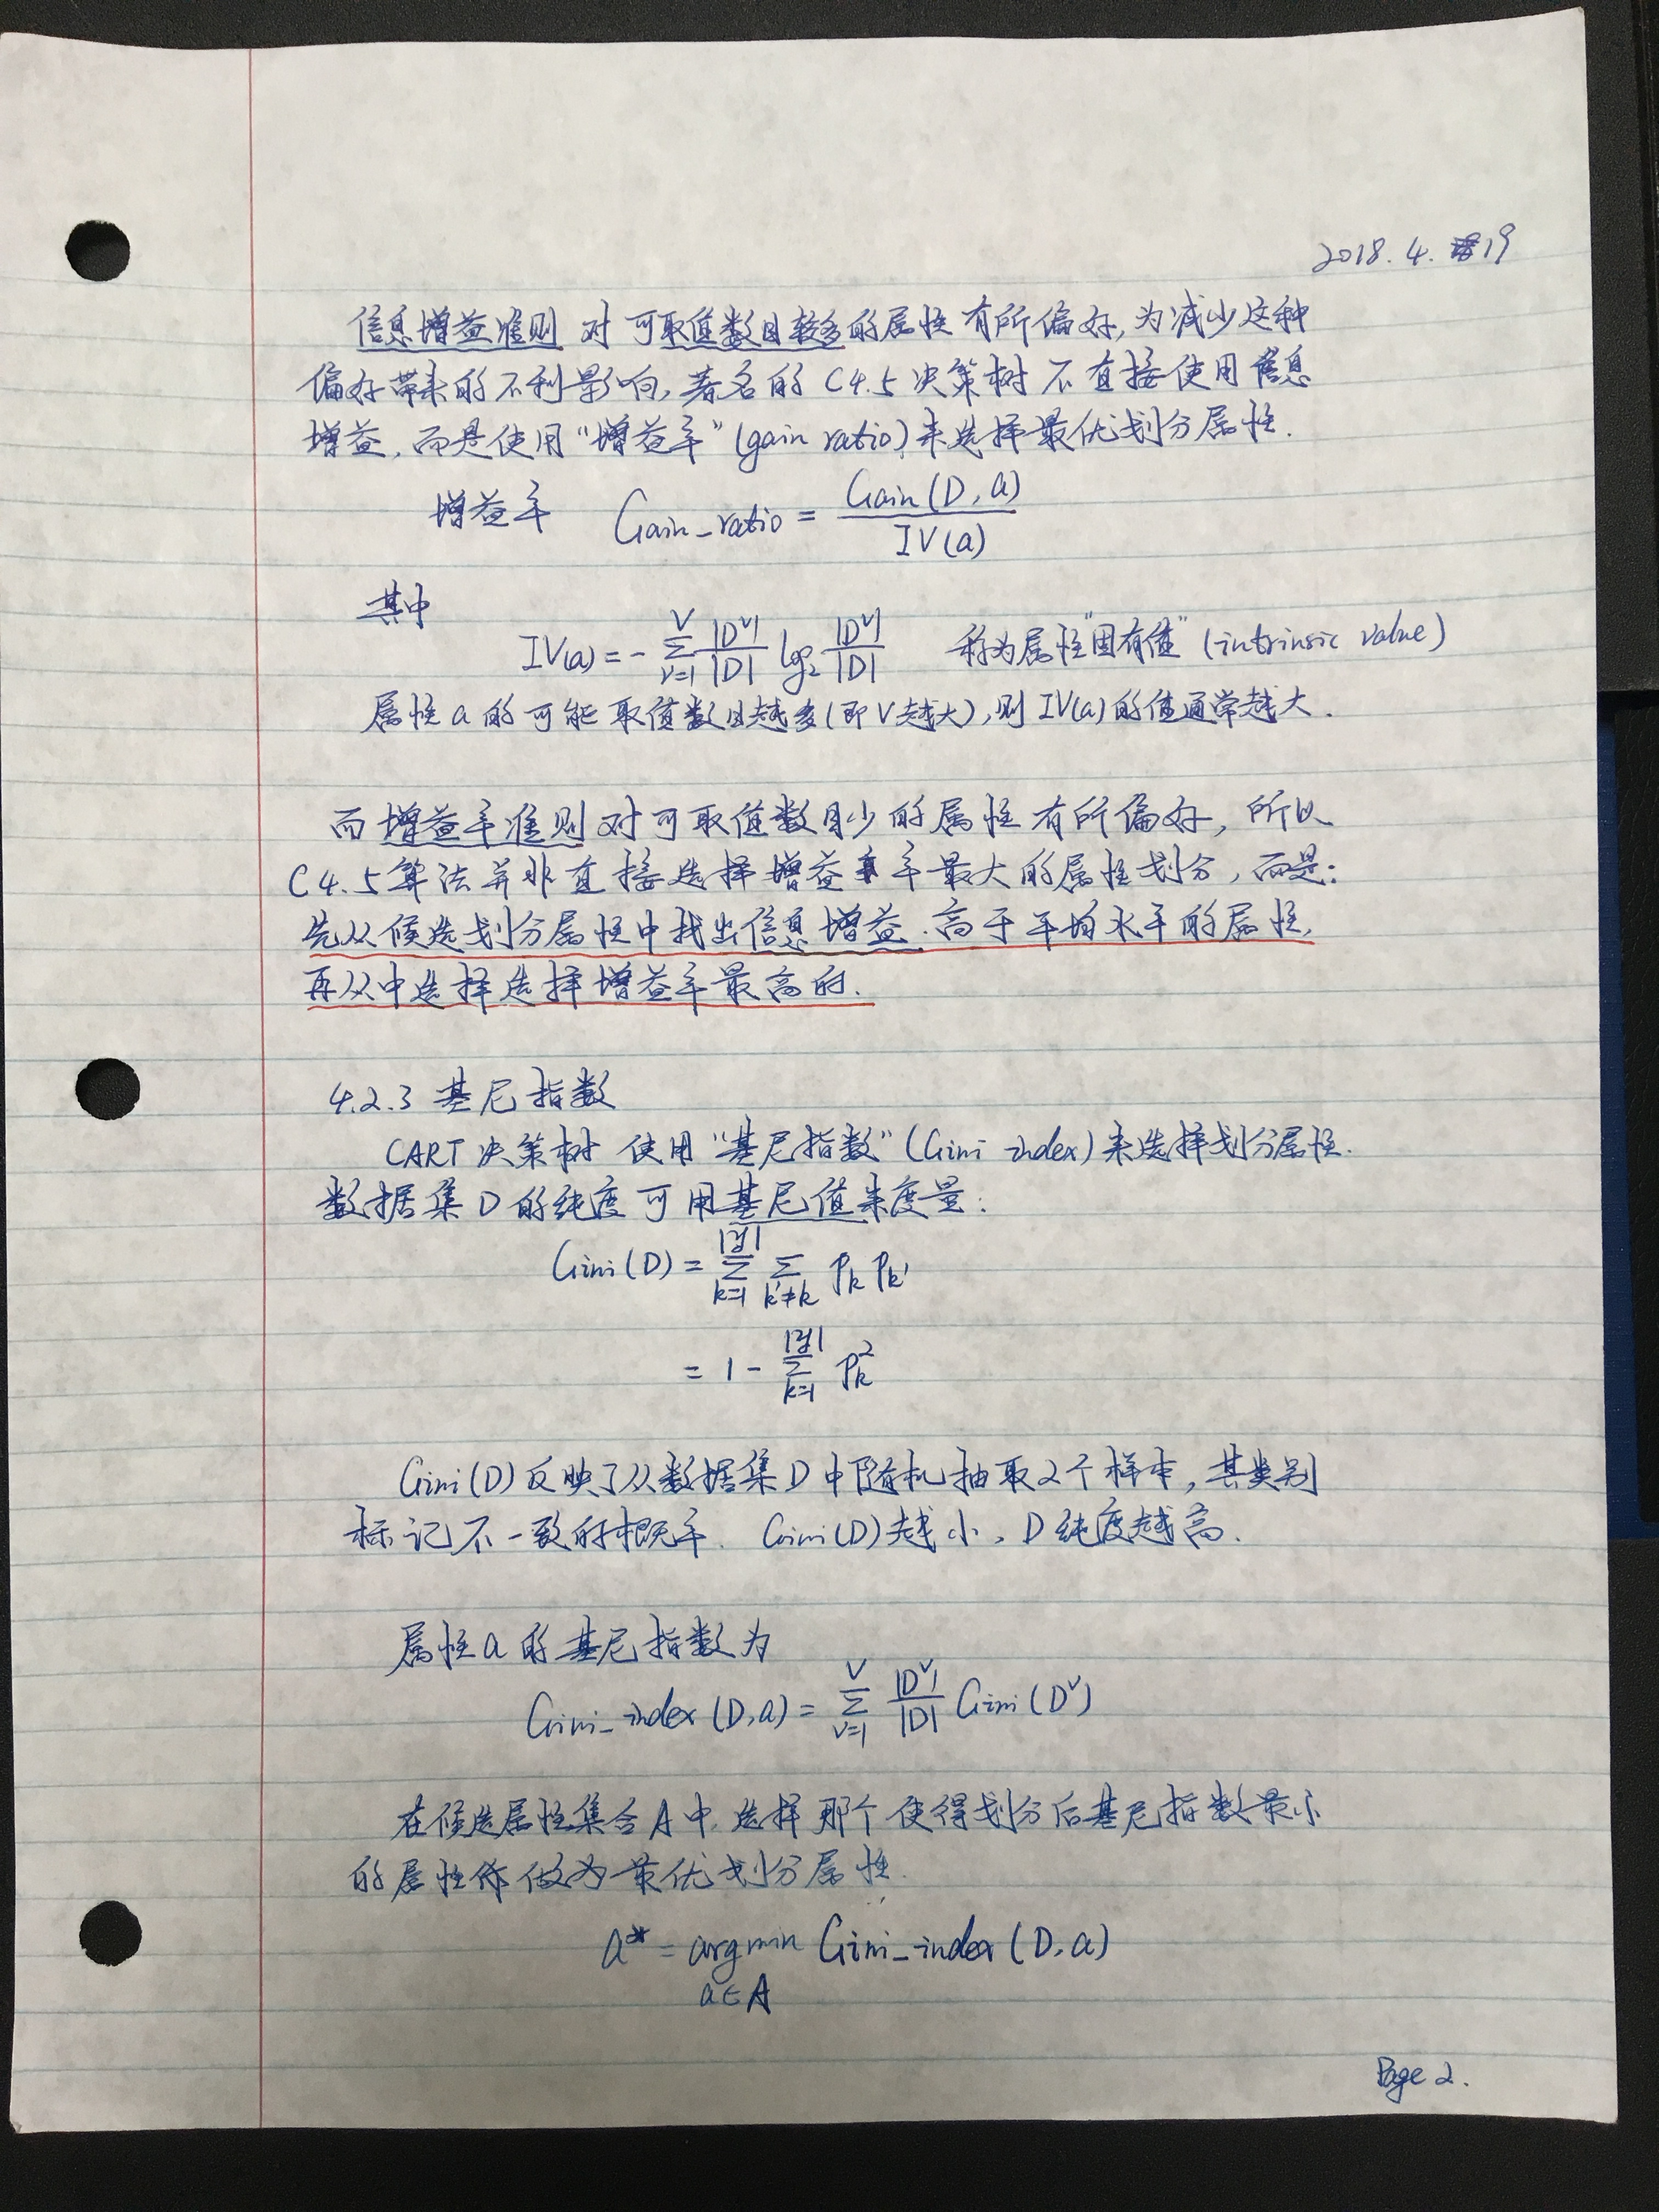 2018.4.19
信息增益准则 对可取值数目较多的属性有所偏好,为减少这种
偏好带来的不利影响,著名的C4.5决策树不直接使用信息
增益,而是使用"增益率"(gain ratio)来选择最优划分属性.
增益率 Gain_ratio = Gain(D,a) / IV(a)
其中
IV(a) = - ∑_{v=1}^{V} |D^v|/|D| log₂ |D^v|/|D| 称为属性"固有值"(intrinsic value)
属性a的可能取值数目越多(即V越大),则IV(a)的值通常越大.
而增益率准则对可取值数目少的属性有所偏好,所以
C4.5算法并非直接选择增益率最大的属性划分,而是:
先从候选划分属性中找出信息增益.高于平均水平的属性,
再从中选择选择增益率最高的.
4.2.3 基尼指数
CART决策树 使用"基尼指数"(Gini index)来选择划分属性.
数据集D的纯度可用基尼值来度量:
Gini(D) = ∑_{k=1}^{|y|} ∑_{k'≠k} p_k p_k'
= 1 - ∑_{k=1}^{|y|} p_k²
Gini(D)反映了从数据集D中随机抽取2个样本,其类别
标记不一致的概率. Gini(D)越小,D纯度越高.
属性a的基尼指数为
Gini_index(D,a) = ∑_{v=1}^{V} |D^v|/|D| Gini(D^v)
在候选属性集合A中,选择那个使得划分后基尼指数最小
的属性作做为最优划分属性.
a* = argmin Gini_index(D,a)
a∈A
Page 2.